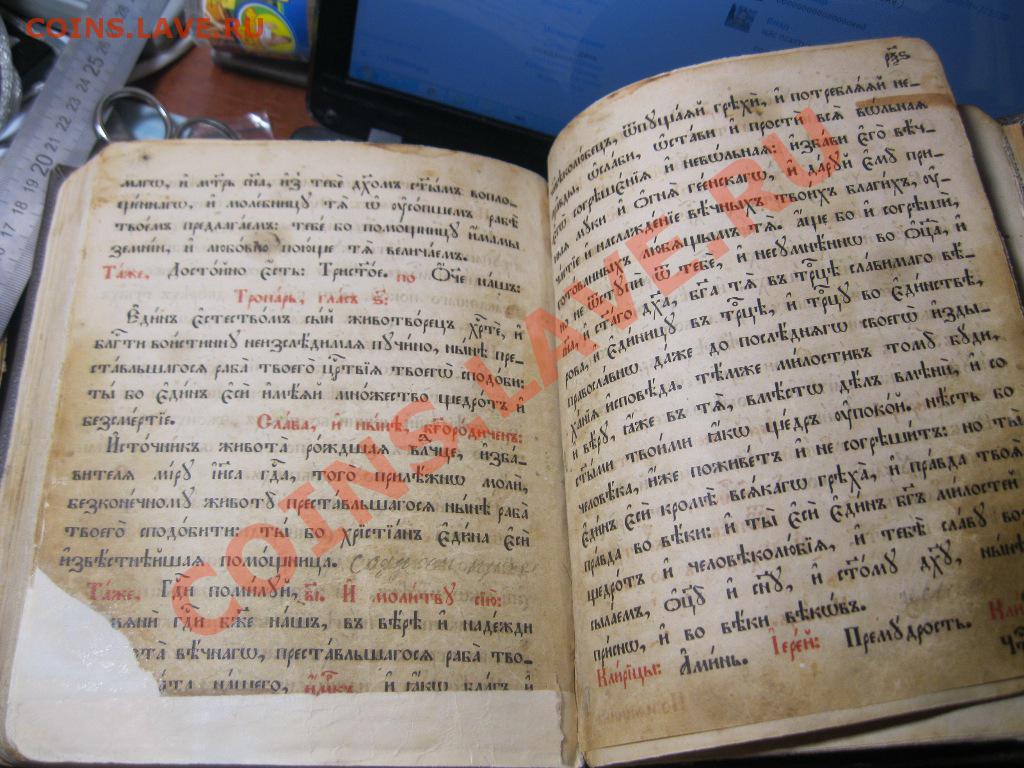 COINS.LAVE.RU
магѡ, и҆ мт҃рь сн҃а, и҆з̾ тебѐ дх҃омъ ст҃ымъ вопло-
ще́ннагѡ, и҆ моле́бницу тѧ̀ ѡ҆ ᲂу҆со́пшемъ рабѣ̀
твое́мъ предлага́емъ: тебе́ бо помо́щницу и҆́мамы
земні́и, и҆ любо́вїю пою́ще тѧ̀ велича́емъ.
Та́же. Досто́йно є҆́сть: Трист҃о́е. по Ѻ҆́ч҃е на́шъ:
Тропа́рь, гла́съ ѕ҃:
Є҆ди́нъ є҆стество́мъ сы́й животво́рецъ хр҃тѐ, и҆
бл҃гти вои́стинну неизслѣ́димаѧ пучи́но, ны́нѣ пре-
ста́вльшагосѧ раба̀ твоего̀ цр҃твїѧ твоегѡ̀ сподо́би:
ты́ бо є҆ди́нъ є҆сѝ и҆мѣ́ѧй мно́жество щедро́тъ и҆
безсме́ртїе. Сла́ва, и҆ ны́нѣ, бг҃оро́диченъ:
И҆сто́чникъ живота̀ ро́ждшаѧ влⷣчце, и҆зба́-
вителѧ мі́ру і҆и҃са гдⷭ҇а, того̀ прилѣ́жнѡ молѝ,
безконе́чному животу̀ преста́вльшагосѧ ны́нѣ раба̀
твоего̀ сподо́бити: ты́ бо хрⷭ҇тїа́нъ є҆ди́на є҆сѝ
и҆звѣ́стнѣйшаѧ помо́щница.
Та́же. Гдⷭ҇и поми́луй, в҃і. И҆ моли́тву сїю̀:
гдⷭ҇и бж҃е на́шъ, въ вѣ́рѣ и҆ наде́жди
вѣ́чнагѡ, преста́вльшагосѧ раба̀ тво-
на́шего, и҆м҃къ и҆ ꙗ҆́кѡ бл҃гъ и҆
рм҃ѕ
ѿпуща́ѧй грѣхѝ, и҆ потреблѧ́ѧй не-
пра́вды, ѡ҆сла́би, ѡ҆ста́ви и҆ простѝ всѧ̀ вѡ́льнаѧ
согрѣшє́нїѧ и҆ невѡ́льнаѧ: и҆зба́ви є҆го̀ вѣ́ч-
ныѧ му́ки и҆ ѻ҆гнѧ̀ гее́нскагѡ, и҆ да́руй є҆му̀ при-
ча́стїе и҆ наслажде́нїе вѣ́чныхъ твои́хъ благи́хъ, ᲂу҆-
гото́ванныхъ лю́бѧщымъ тѧ̀. а҆́ще бо и҆ согрѣшѝ,
но не ѿступѝ ѿ тебє̀, и҆ несумнѣ́ннѡ во ѻ҆ц҃а̀, и҆
сн҃а, и҆ ст҃а́го дх҃а, бг҃а тѧ̀ въ трⷪ҇цѣ сла́вимаго вѣ́-
рова, и҆ є҆ди́ницу въ трⷪ҇цѣ, и҆ трⷪ҇цу во є҆ди́нствѣ,
правосла́внѡ да́же до послѣ́днѧгѡ своегѡ̀ и҆здыⸯ-
ха́нїѧ и҆сповѣ́да. тѣ́мже ми́лостивъ тому̀ бу́ди,
и҆ вѣ́ру, ꙗ҆́же въ тѧ̀, вмѣ́стѡ дѣ́лъ вмѣнѝ, и҆ со
ст҃ы́ми твои́ми ꙗ҆́кѡ ще́дръ ᲂу҆поко́й. нѣ́сть бо
человѣ́ка, и҆́же поживе́тъ и҆ не согрѣши́тъ: но ты̀
є҆ди́нъ є҆сѝ кромѣ̀ всѧ́кагѡ грѣха̀, и҆ пра́вда твоѧ̀
пра́вда во вѣ́ки: и҆ ты̀ є҆сѝ є҆ди́нъ бг҃ъ ми́лостей
щедро́тъ и҆ человѣколю́бїѧ, и҆ тебѣ̀ сла́ву воз-
сыла́емъ, ѻ҆ц҃у̀ и҆ сн҃у, и҆ ст҃о́му дх҃у, ны́нѣ
при́снѡ, и҆ во вѣ́ки вѣкѡ́въ.
Кли́рїцы: А҆ми́нь. І҆ере́й: Прему́дрость.
COINS.LAVE.RU